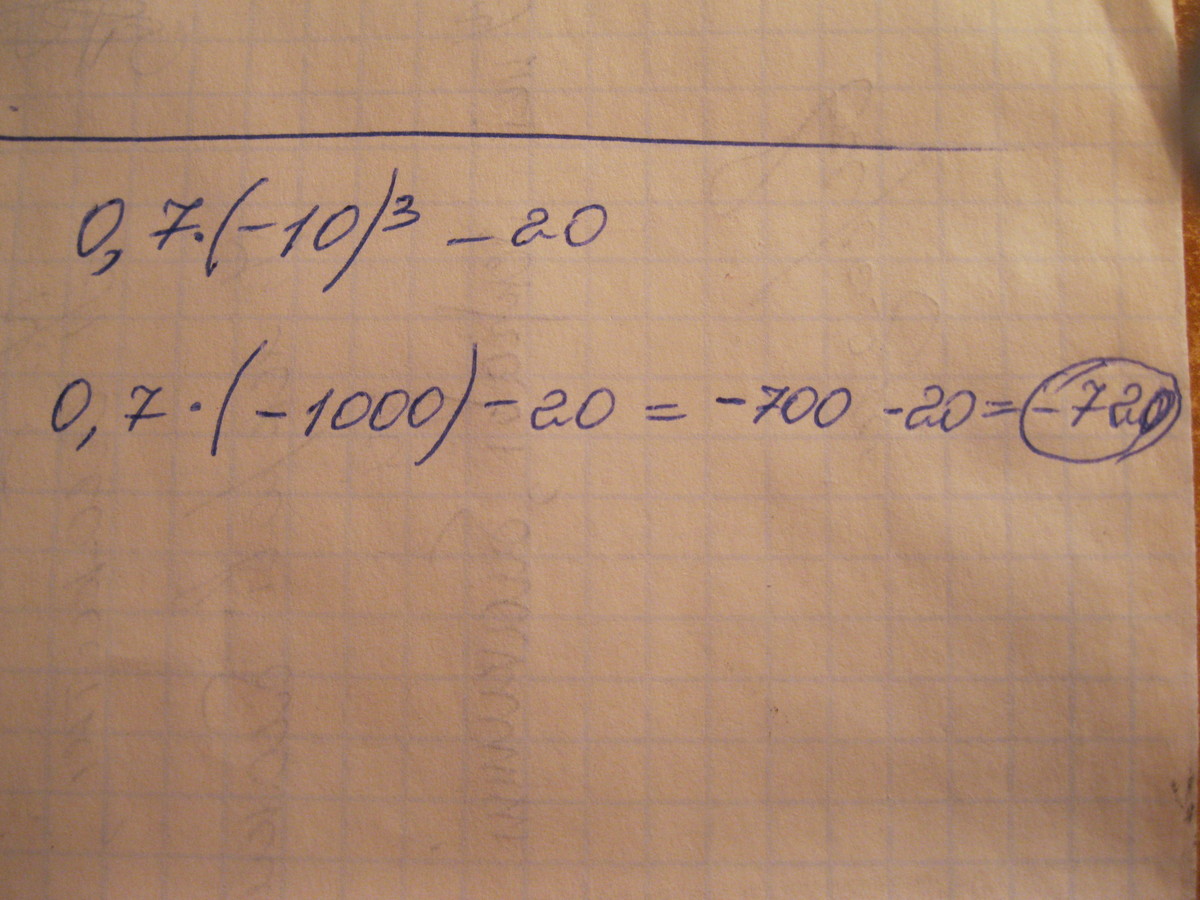 0,7·(-10)³ - 20
0,7·(-1000) - 20 = -700 - 20 = -720